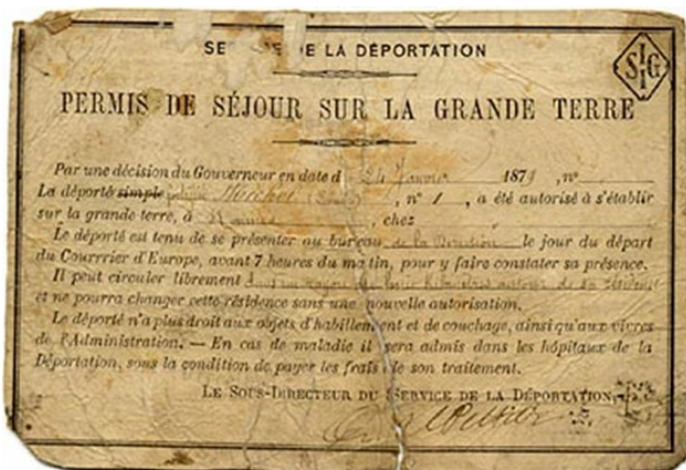 SE DE LA DÉPORTATION
SIGI
PERMIS DE SÉJOUR SUR LA GRANDE TERRE
Par une décision du Gouverneur en date d 24 Janvier 1879, nº
La déporté simple Michel , nº 1 , a été autorisé à s'établir
sur la grande terre, à , chez
Le déporté est tenu de se présenter au bureau de la Direction le jour du départ
du Courrrier d'Europe, avant 7 heures du matin, pour y faire constater sa présence.
Il peut circuler librement
et ne pourra changer cette résidence sans une nouvelle autorisation.
Le déporté n'a plus droit aux objets d'habillement et de couchage, ainsi qu'aux vivres
de l'Administration. — En cas de maladie il sera admis dans les hôpitaux de la
Déportation, sous la condition de payer les frais de son traitement.
LE SOUS-DIRECTEUR DU SERVICE DE LA DÉPORTATION,